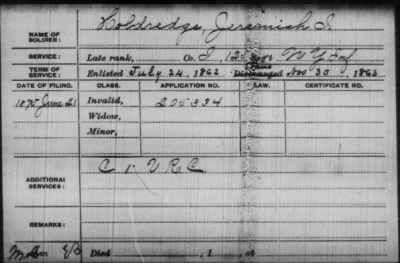 NAME OF SOLDIER: Holdredge, Jeremiah S.
SERVICE: Late rank, Co. I, 125 Reg't N Y Inf
TERM OF SERVICE: Enlisted July 24, 1862 Discharged Nov 30, 1863
DATE OF FILING. CLASS. APPLICATION NO. LAW. CERTIFICATE NO.
1875 June 21 Invalid, 205334
Widow,
Minor,
ADDITIONAL SERVICES: C 1 V R C
REMARKS:
Died , 1 , at